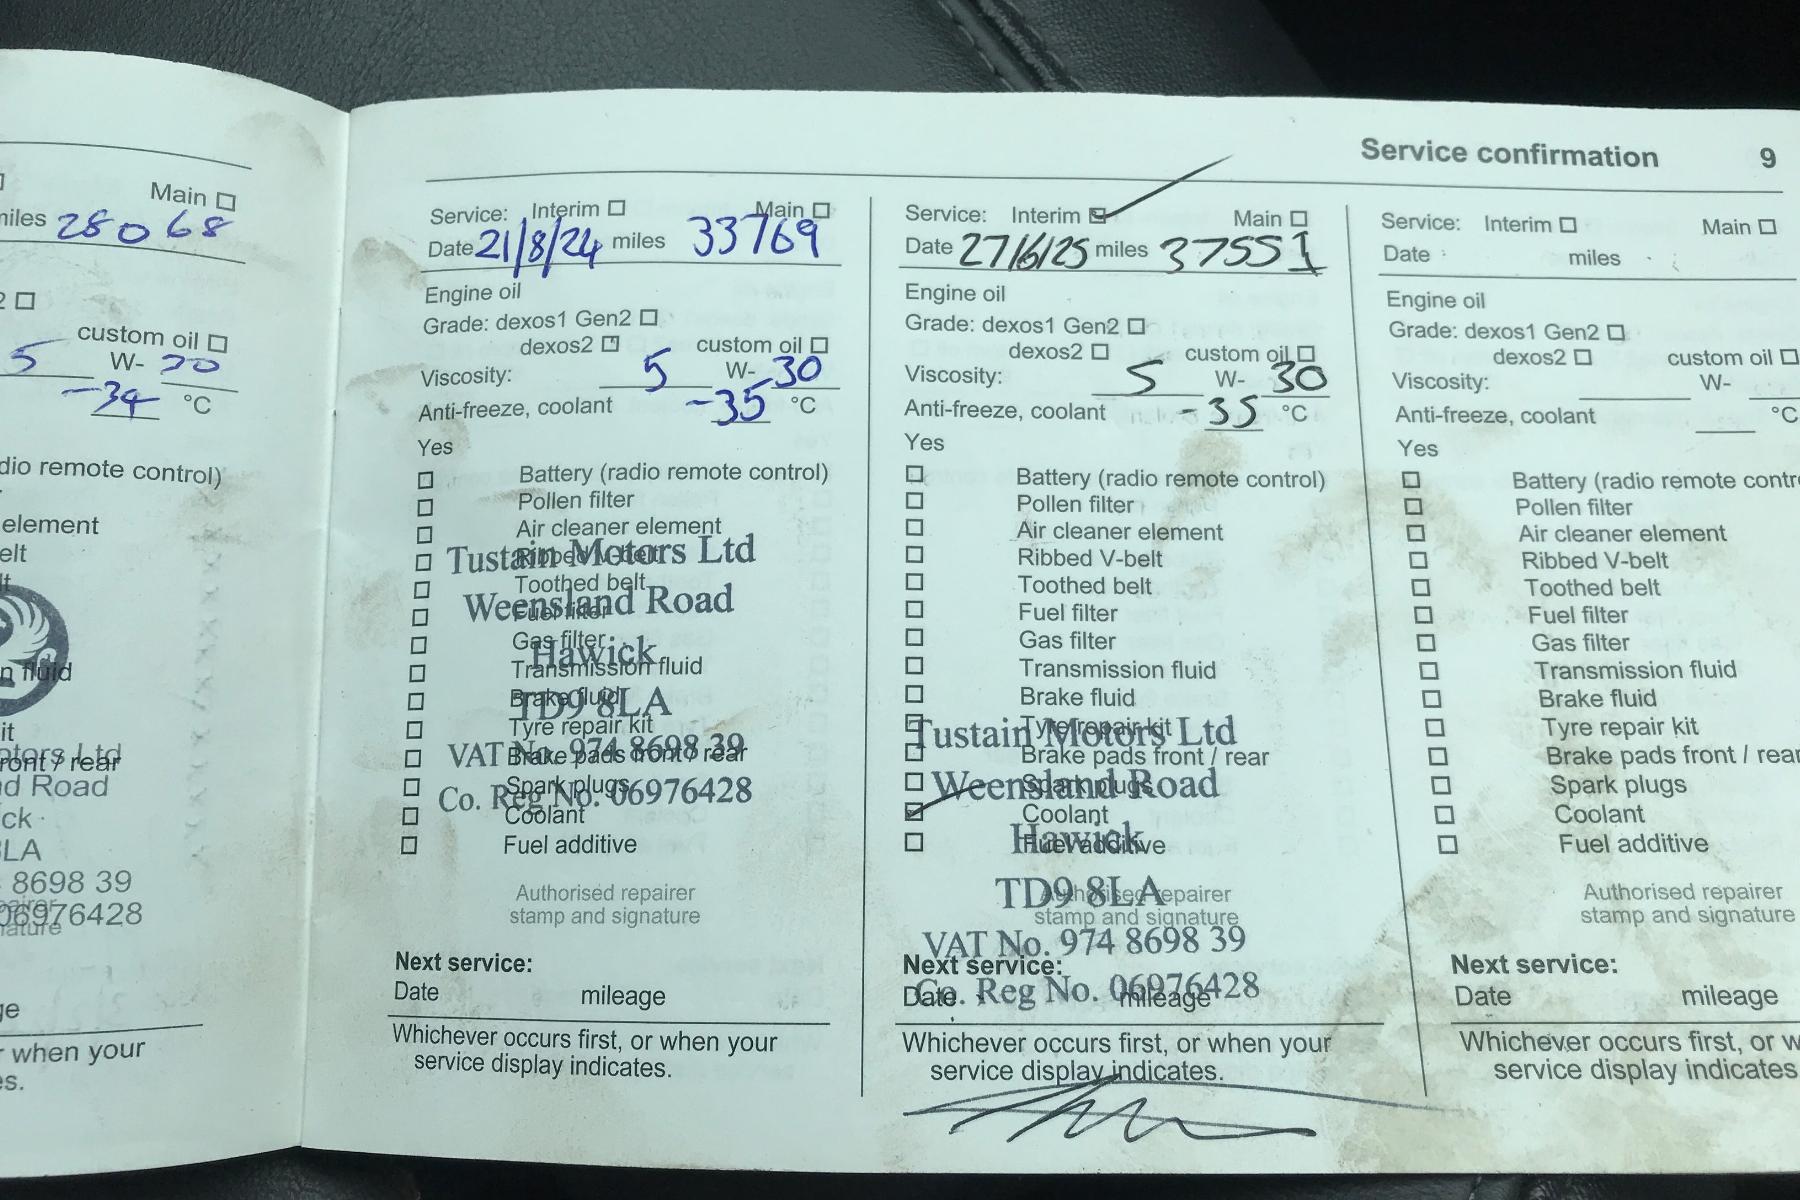 Service confirmation 9
Main
miles 28068
2
custom oil
5 W-
-34 °C
dio remote control)
element
elt
n fluid
it
otors Ltd
ront / rear
d Road
ck
LA
8698 39
06976428
ature
ge
when your
es.
Service: Interim Main
Date 21/8/24 miles 33769
Engine oil
Grade: dexos1 Gen2
dexos2 custom oil
Viscosity: 5 W- 30
Anti-freeze, coolant -35 °C
Yes
Battery (radio remote control)
Pollen filter
Air cleaner element
Ribbed V-belt
Tustain Motors Ltd
Toothed belt
Weensland Road
Fuel filter
Gas filter
Hawick
Transmission fluid
Brake fluid
TD9 8LA
Tyre repair kit
VAT No. 974 8698 39
Brake pads front / rear
Spark plugs
Co. Reg No. 06976428
Coolant
Fuel additive
Authorised repairer
stamp and signature
Next service:
Date mileage
Whichever occurs first, or when your
service display indicates.
Service: Interim Main
Date 27/6/25 miles 37551
Engine oil
Grade: dexos1 Gen2
dexos2 custom oil
Viscosity: 5 W- 30
Anti-freeze, coolant -35 °C
Yes
Battery (radio remote control)
Pollen filter
Air cleaner element
Ribbed V-belt
Toothed belt
Fuel filter
Gas filter
Transmission fluid
Brake fluid
Tyre repair kit
Tustain Motors Ltd
Brake pads front / rear
Spark plugs
Weensland Road
Coolant
Hawick
Fuel additive
TD9 8LA
Authorised repairer
stamp and signature
VAT No. 974 8698 39
Next service:
Co. Reg No. 06976428
Date mileage
Whichever occurs first, or when your
service display indicates.
Service: Interim Main
Date miles
Engine oil
Grade: dexos1 Gen2
dexos2 custom oil
Viscosity: W-
Anti-freeze, coolant °C
Yes
Battery (radio remote contr
Pollen filter
Air cleaner element
Ribbed V-belt
Toothed belt
Fuel filter
Gas filter
Transmission fluid
Brake fluid
Tyre repair kit
Brake pads front / rear
Spark plugs
Coolant
Fuel additive
Authorised repairer
stamp and signature
Next service:
Date mileage
Whichever occurs first, or w
service display indicates